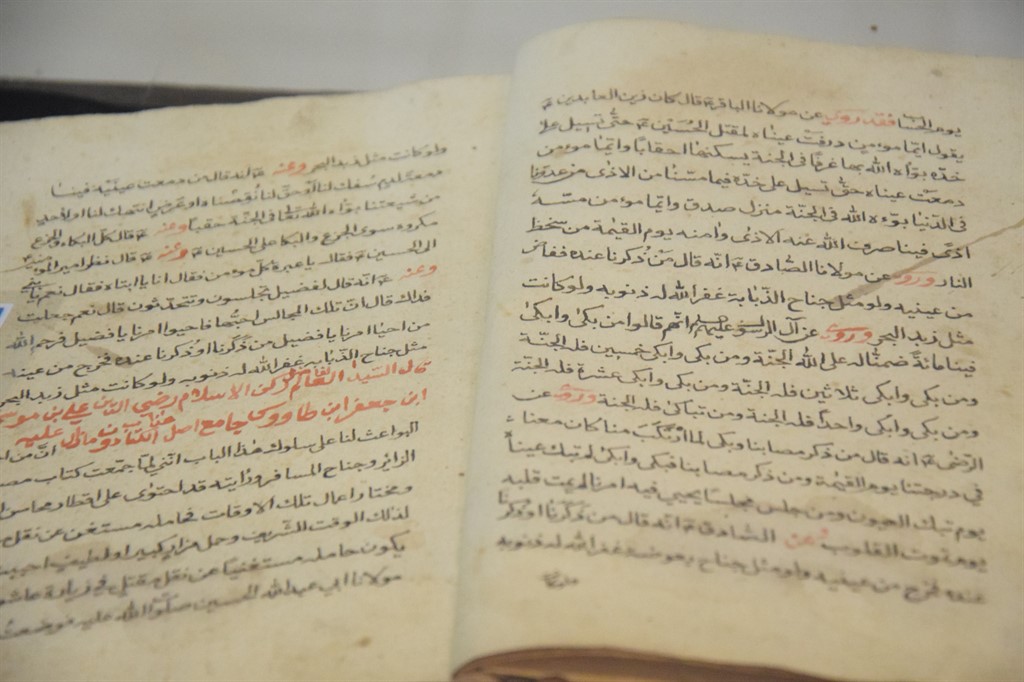 يوم الحسا فقد روى عن مولانا الباقر ع قال كان زين العابدين ع
يقول ايما مومن ذرفت عيناه لمقتل الحسين ع حتى تسيل على
خده بوّاه الله بها غرفا في الجنة يسكنها احقابا وايما مومن
دمعت عيناه حتى تسيل على خده فيما مسّنا من الاذى من عدونا
في الدنيا بوءه الله في الجنة منزل صدق وايما مومن مسّه
اذى فينا صرف الله عنه الاذى وامنه يوم القيمة من سخط
النار وروى عن مولانا الصادق ع انه قال من ذكرنا عنده
من عينيه ولو مثل جناح الذبابة غفر الله له ذنوبه ولو كانت
مثل زبد البحر وروى عن آل الرسول عليهم انهم قالوا من بكى وابكى
فينا مائة ضمنا له على الله الجنة ومن بكى وابكى خمسين فله الجنة
ومن بكى وابكى ثلاثين فله الجنة ومن بكى وابكى عشرة فله الجنة
ومن بكى وابكى واحدا فله الجنة ومن تباكى فله الجنة وروى عن
الرضى ع انه قال من ذكر مصابنا وبكى لما ارتكب منا كان معنا
في درجتنا يوم القيمة ومن ذكر مصابنا فبكى وابكى لم تبك عيناه
يوم تبك العيون ومن جلس مجلسا يحيى فيه امرنا لم يمت قلبه
يوم تموت القلوب وعن الصادق ع انه قال من ذكرنا او ذكرنا
عنده فخرج من عينيه ولو مثل جناح بعوضة غفر الله له ذنوبه
ولو كانت مثل زبد البحر وعنه ع انه قال من دمعت عينيه فينا
دمعة لدم سفك لنا او حق لنا نقصنا او عرض انتهك لنا او لاحد
من شيعتنا بوّاه الله بها في الجنة حقبا وعنه ع قال كل البكاء والجزع
مكروه سوى الجزع والبكا على الحسين ع وعنه ع قال نظر امير
الى الحسين ع فقال يا عبرة كل مومن فقال انا يا ابتاه فقال نعم يا
وعنه ع انه قال لفضيل تجلسون وتتحدثون قال نعم جعلت
فداك قال ان تلك المجالس احبها فاحيوا امرنا يا فضيل فرحم الله
من احيا امرنا يا فضيل من ذكرنا او ذكرنا عنده فخرج من عينه
مثل جناح الذبابة غفر الله له ذنوبه ولو كانت مثل زبد البحر
قال السيد ركن الاسلام رضى الدين علي بن موسى
ابن جعفر ابن طاووس جامع اصل
البواعث لنا على سلوك هذا الباب انني لما جمعت كتاب
الزائر وجناح المسافر ورايته قد احتوى على اقطار محاسن
ومختار اعمال تلك الاوقات فحامله مستغن عن نقل
لذلك الوقت الشريف وحمل مزار كبير او لطيف احببت
يكون حامله مستغنيا عن نقل مقتل في زيارة
مولانا ابي عبد الله الحسين صلوا الله عليه فوضعت